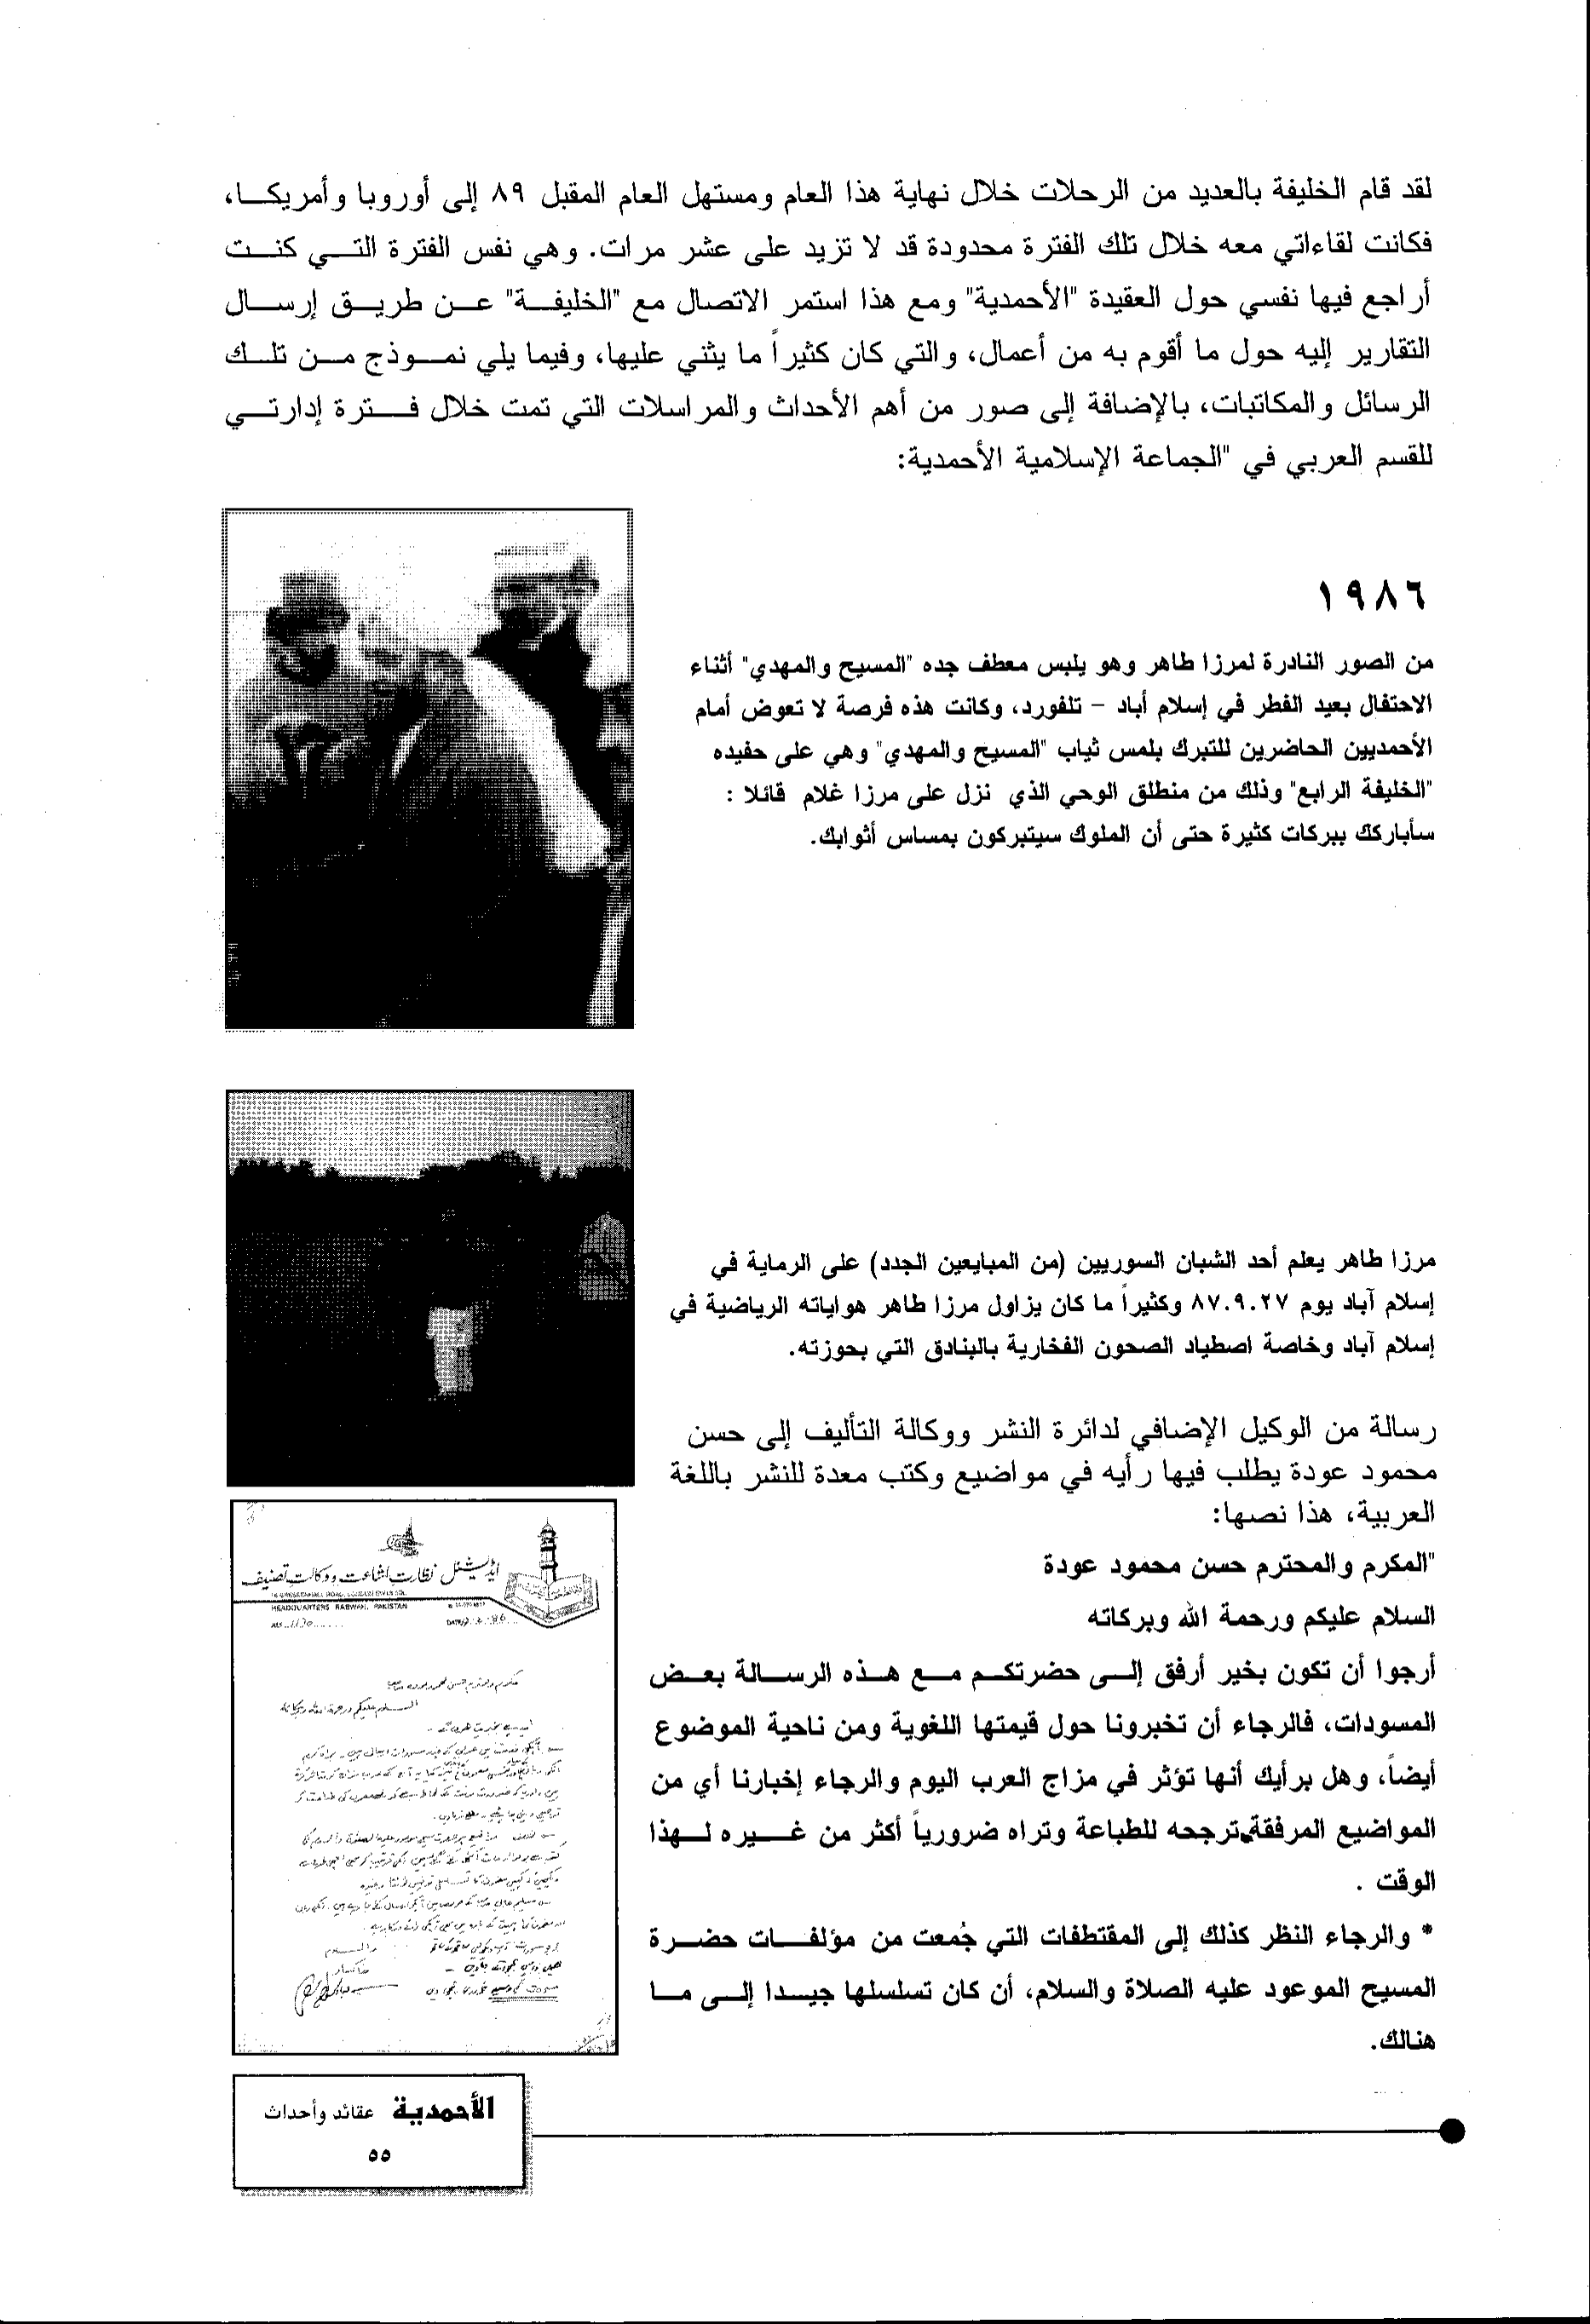 لقد قام الخليفة بالعديد من الرحلات خلال نهاية هذا العام ومستهل العام المقبل ٨٩ إلى أوروبا وأمريكا،
فكانت لقاءاتي معه خلال تلك الفترة محدودة قد لا تزيد على عشر مرات. وهي نفس الفترة التي كنت
أراجع فيها نفسي حول العقيدة "الأحمدية" ومع هذا استمر الاتصال مع "الخليفة" عن طريق إرسال
التقارير إليه حول ما أقوم به من أعمال، والتي كان كثيراً ما يثني عليها، وفيما يلي نموذج من تلك
الرسائل والمكاتبات، بالإضافة إلى صور من أهم الأحداث والمراسلات التي تمت خلال فترة إدارتي
للقسم العربي في "الجماعة الإسلامية الأحمدية:
١٩٨٦
من الصور النادرة لمرزا طاهر وهو يلبس معطف جده "المسيح والمهدي" أثناء
الاحتفال بعيد الفطر في إسلام أباد - تلفورد، وكانت هذه فرصة لا تعوض أمام
الأحمديين الحاضرين للتبرك بلمس ثياب "المسيح والمهدي" وهي على حفيده
"الخليفة الرابع" وذلك من منطلق الوحي الذي نزل على مرزا غلام قائلا :
سأباركك ببركات كثيرة حتى أن الملوك سيتبركون بمساس أثوابك.
مرزا طاهر يعلم أحد الشبان السوريين (من المبايعين الجدد) على الرماية في
إسلام آباد يوم ٨٧.٩.٢٧ وكثيراً ما كان يزاول مرزا طاهر هواياته الرياضية في
إسلام آباد وخاصة اصطياد الصحون الفخارية بالبنادق التي بحوزته.
رسالة من الوكيل الإضافي لدائرة النشر ووكالة التأليف إلى حسن
محمود عودة يطلب فيها رأيه في مواضيع وكتب معدة للنشر باللغة
العربية، هذا نصها:
"المكرم والمحترم حسن محمود عودة
السلام عليكم ورحمة الله وبركاته
أرجوا أن تكون بخير أرفق إلى حضرتكم مع هذه الرسالة بعض
المسودات، فالرجاء أن تخبرونا حول قيمتها اللغوية ومن ناحية الموضوع
أيضاً، وهل برأيك أنها تؤثر في مزاج العرب اليوم والرجاء إخبارنا أي من
المواضيع المرفقة ترجحه للطباعة وتراه ضرورياً أكثر من غيره لهذا
الوقت .
* والرجاء النظر كذلك إلى المقتطفات التي جُمعت من مؤلفات حضرة
المسيح الموعود عليه الصلاة والسلام، أن كان تسلسلها جيدا إلى ما
هنالك.
ایڈیشنل نظارت اشاعت ووکالت تصنیف
HEADQUARTERS RABWAH, PAKISTAN
الأحمدية عقائد وأحداث
٥٥